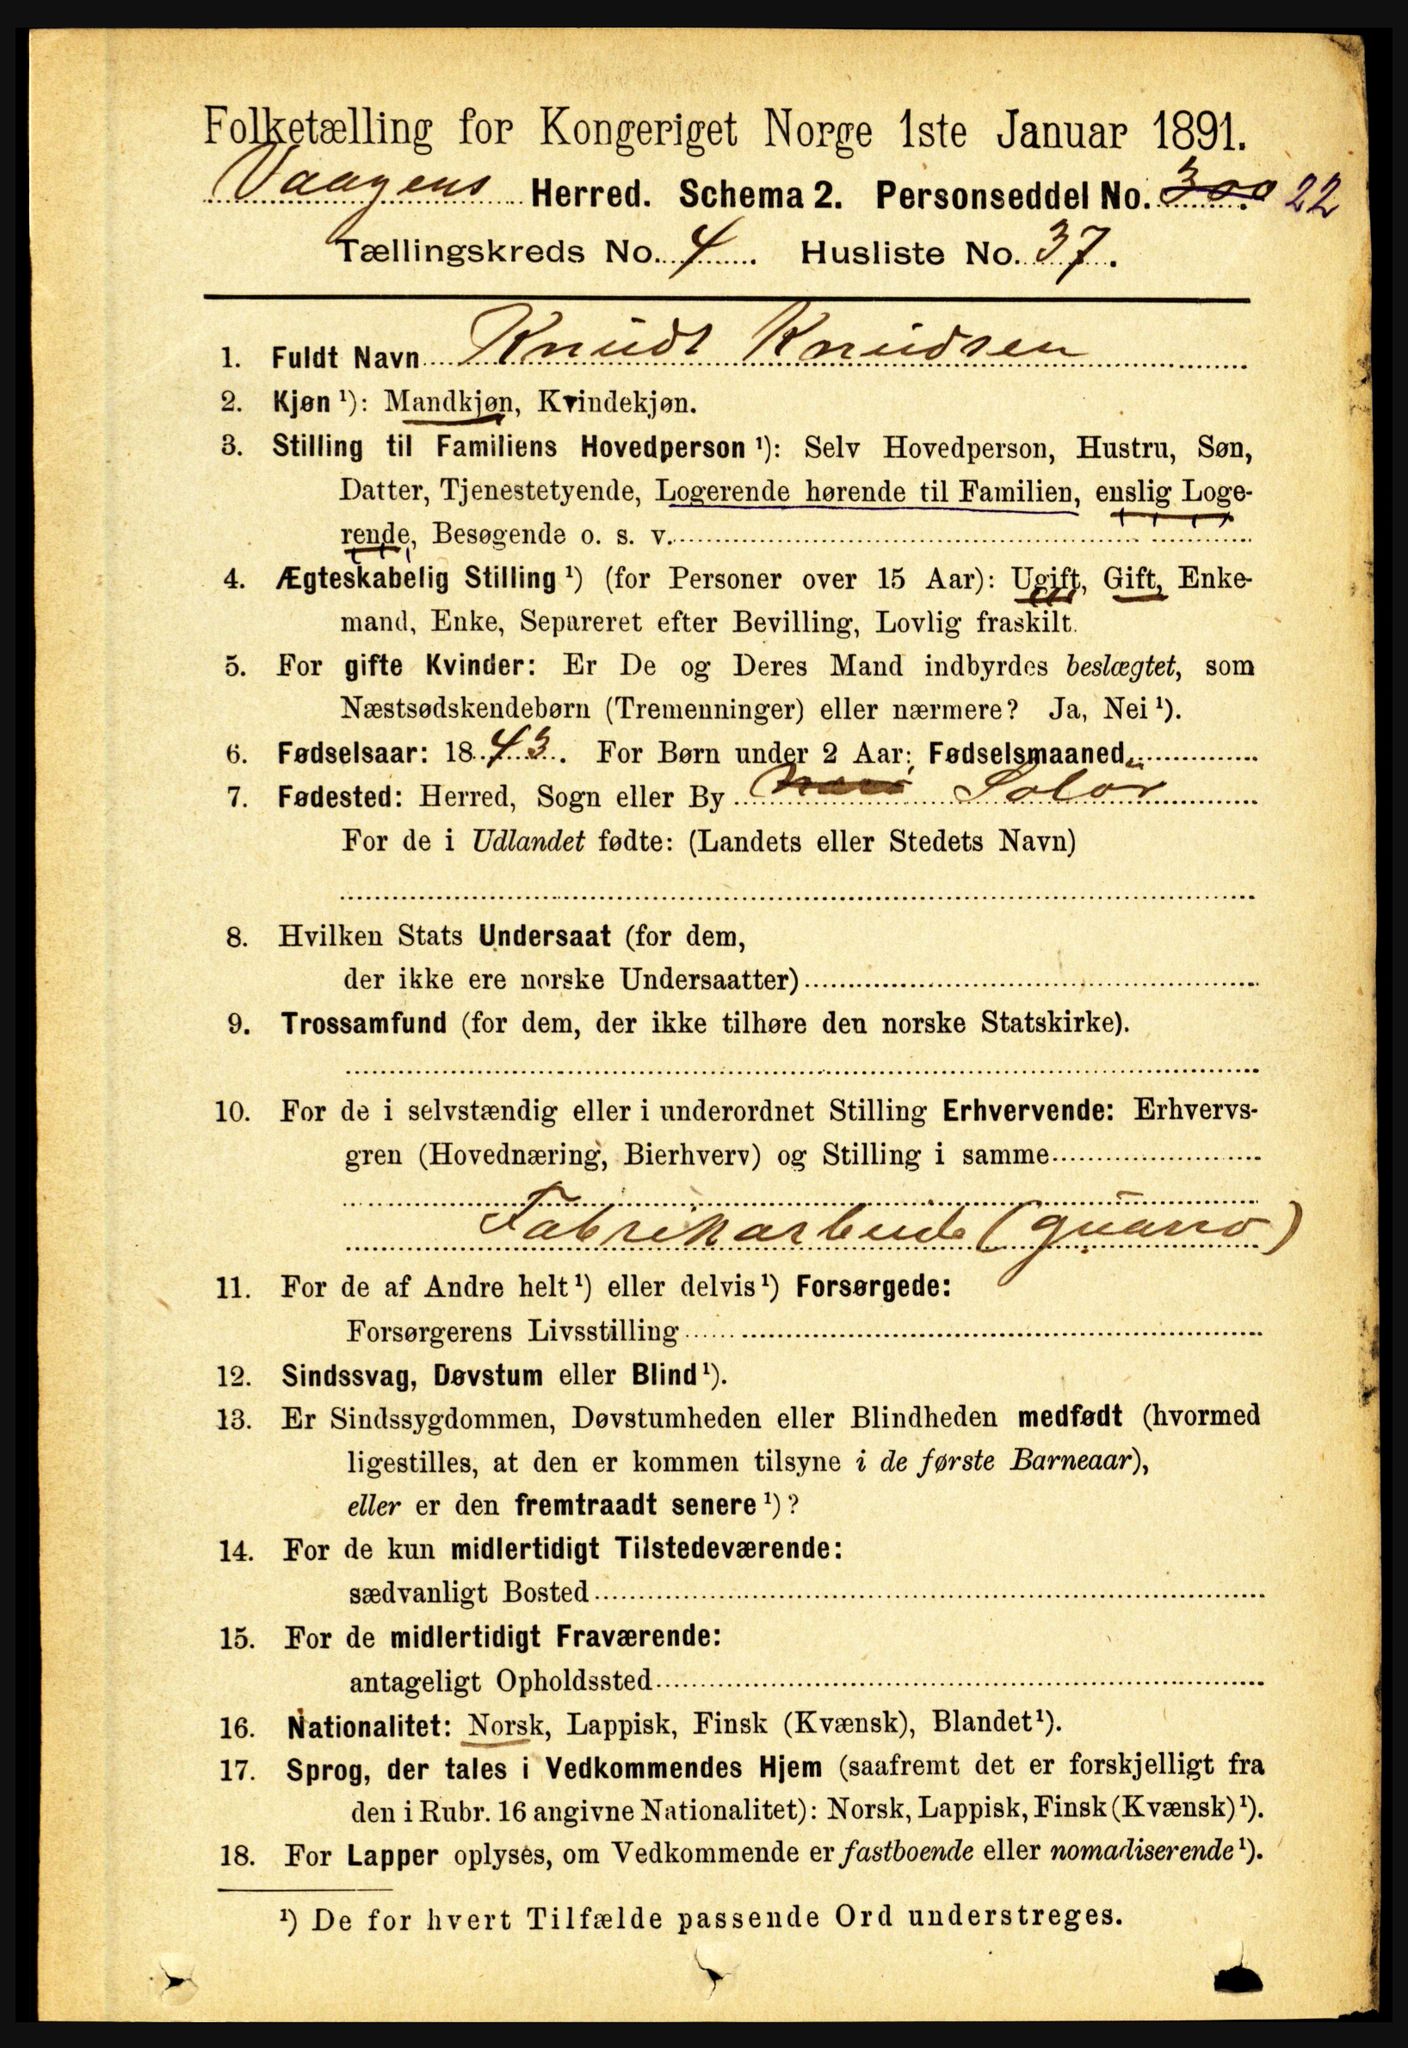 Folketælling for Kongeriget Norge 1ste Januar 1891.
Vaagens Herred. Schema 2. Personseddel No. 300 22
Tællingskreds No. 4. Husliste No. 37.
1. Fuldt Navn Knudt Knudsen
2. Kjøn ¹): Mandkjøn, Kvindekjøn.
3. Stilling til Familiens Hovedperson ¹): Selv Hovedperson, Hustru, Søn,
Datter, Tjenestetyende, Logerende hørende til Familien, enslig Loge-
rende, Besøgende o. s. v.
4. Ægteskabelig Stilling ¹) (for Personer over 15 Aar): Ugift, Gift, Enke-
mand, Enke, Separeret efter Bevilling, Lovlig fraskilt.
5. For gifte Kvinder: Er De og Deres Mand indbyrdes beslægtet, som
Næstsødskendebørn (Tremenninger) eller nærmere? Ja, Nei ¹).
6. Fødselsaar: 1843. For Børn under 2 Aar: Fødselsmaaned
7. Fødested: Herred, Sogn eller By Solør
For de i Udlandet fødte: (Landets eller Stedets Navn)
8. Hvilken Stats Undersaat (for dem,
der ikke ere norske Undersaatter)
9. Trossamfund (for dem, der ikke tilhøre den norske Statskirke).
10. For de i selvstændig eller i underordnet Stilling Erhvervende: Erhvervs-
gren (Hovednæring, Bierhverv) og Stilling i samme
Fabrikarbeide (guano)
11. For de af Andre helt ¹) eller delvis ¹) Forsørgede:
Forsørgerens Livsstilling
12. Sindssvag, Døvstum eller Blind ¹).
13. Er Sindssygdommen, Døvstumheden eller Blindheden medfødt (hvormed
ligestilles, at den er kommen tilsyne i de første Barneaar),
eller er den fremtraadt senere ¹)?
14. For de kun midlertidigt Tilstedeværende:
sædvanligt Bosted
15. For de midlertidigt Fraværende:
antageligt Opholdssted
16. Nationalitet: Norsk, Lappisk, Finsk (Kvænsk), Blandet ¹).
17. Sprog, der tales i Vedkommendes Hjem (saafremt det er forskjelligt fra
den i Rubr. 16 angivne Nationalitet): Norsk, Lappisk, Finsk (Kvænsk) ¹).
18. For Lapper oplyses, om Vedkommende er fastboende eller nomadiserende ¹).
¹) De for hvert Tilfælde passende Ord understreges.